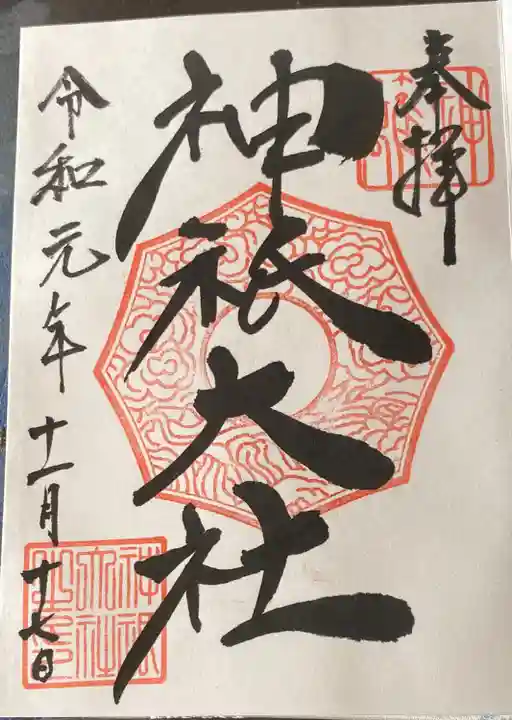 奉拝
神祇大社
令和元年十一月十七日
神祇
大社
之印